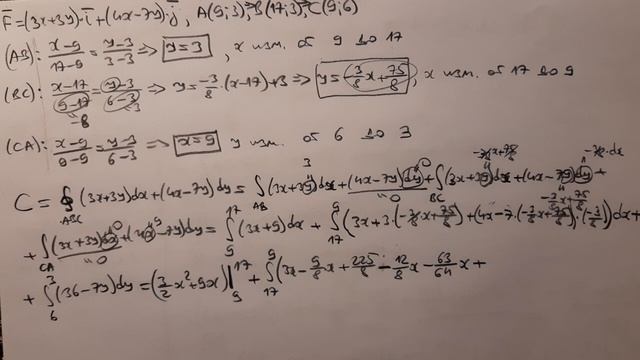 F̄=(3x+3y)·ī+(4x-7y)·j̄, A(9;3), B(17;3), C(9;6)
(AB): (x-9)/(17-9) = (y-3)/(3-3) => y=3, x изм. от 9 до 17
(BC): (x-17)/(9-17) = (y-3)/(6-3) => y=-3/8·(x-17)+3 => y=-3/8x+75/8, x изм. от 17 до 9
-8 3
(CA): (x-9)/(9-9) = (y-3)/(6-3) => x=9 y изм. от 6 до 3
3 0 -3/8x+75/8 -3/8·dx
C = ∮ABC (3x+3y)dx+(4x-7y)dy = ∫AB (3x+3y)dx+(4x-7y)dy+∫BC (3x+3y)dx+(4x-7y)dy+
0 9 0 -3/8x+75/8
+∫CA (3x+3y)dx+(4x-7y)dy = ∫₉¹⁷(3x+9)dx + ∫₁₇⁹(3x+3·(-3/8x+75/8)+(4x-7·(-3/8x+75/8)·(-3/8))dx+
0
+∫₆³(36-7y)dy = (3/2x²+9x)|₉¹⁷ + ∫₁₇⁹(3x-9/8x+225/8-12/8x-63/64x+